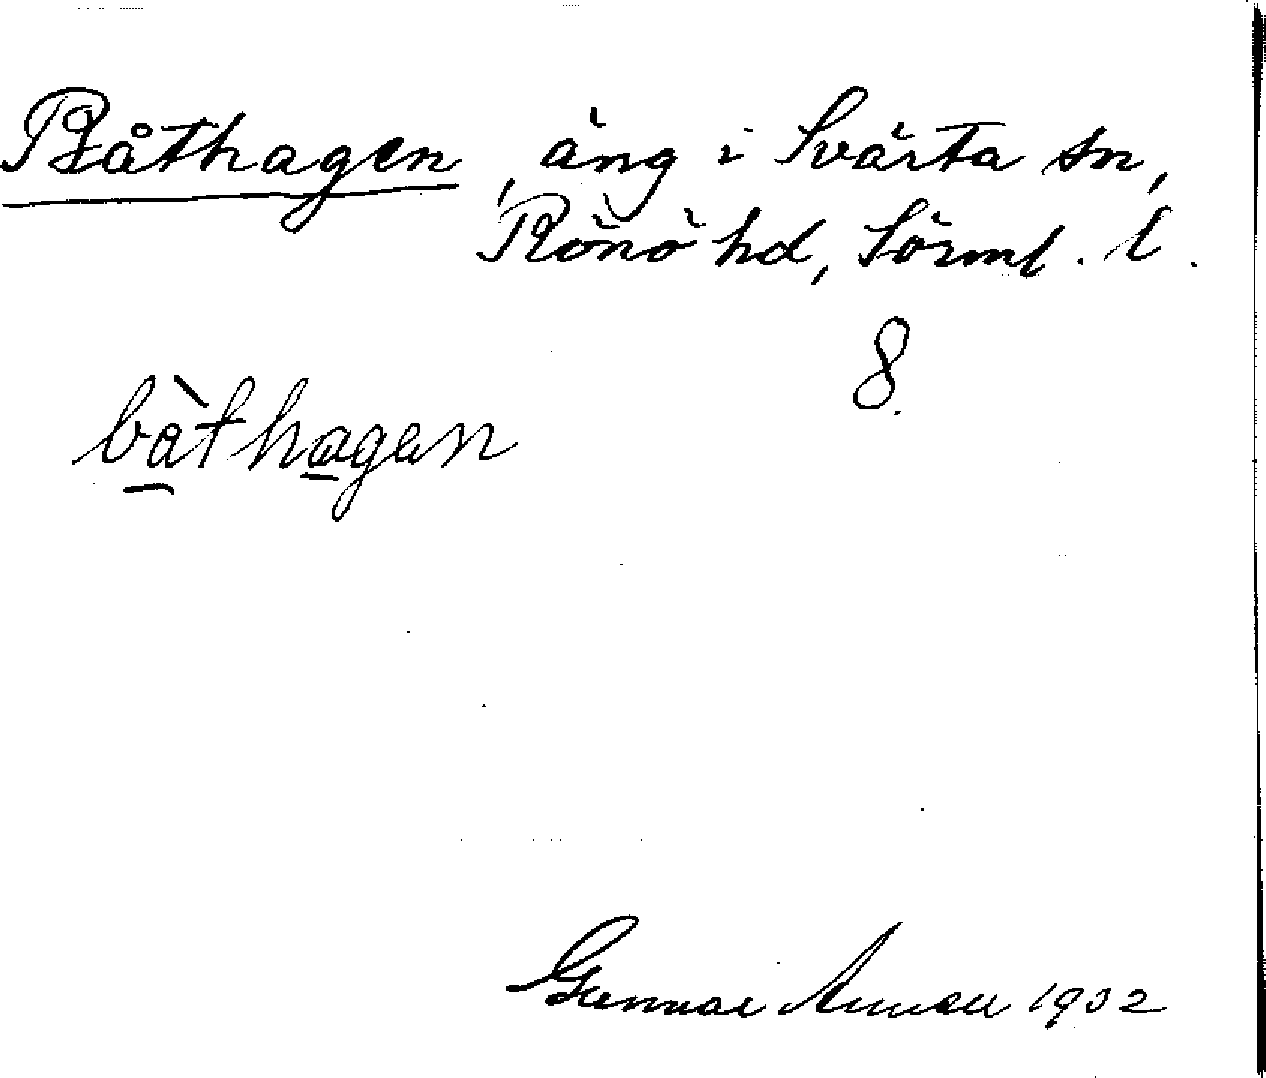 Båthagen, äng i Svärta sn,
Rönö hd, Sörml. l.
8.
bàthagen
Gunnar 1932